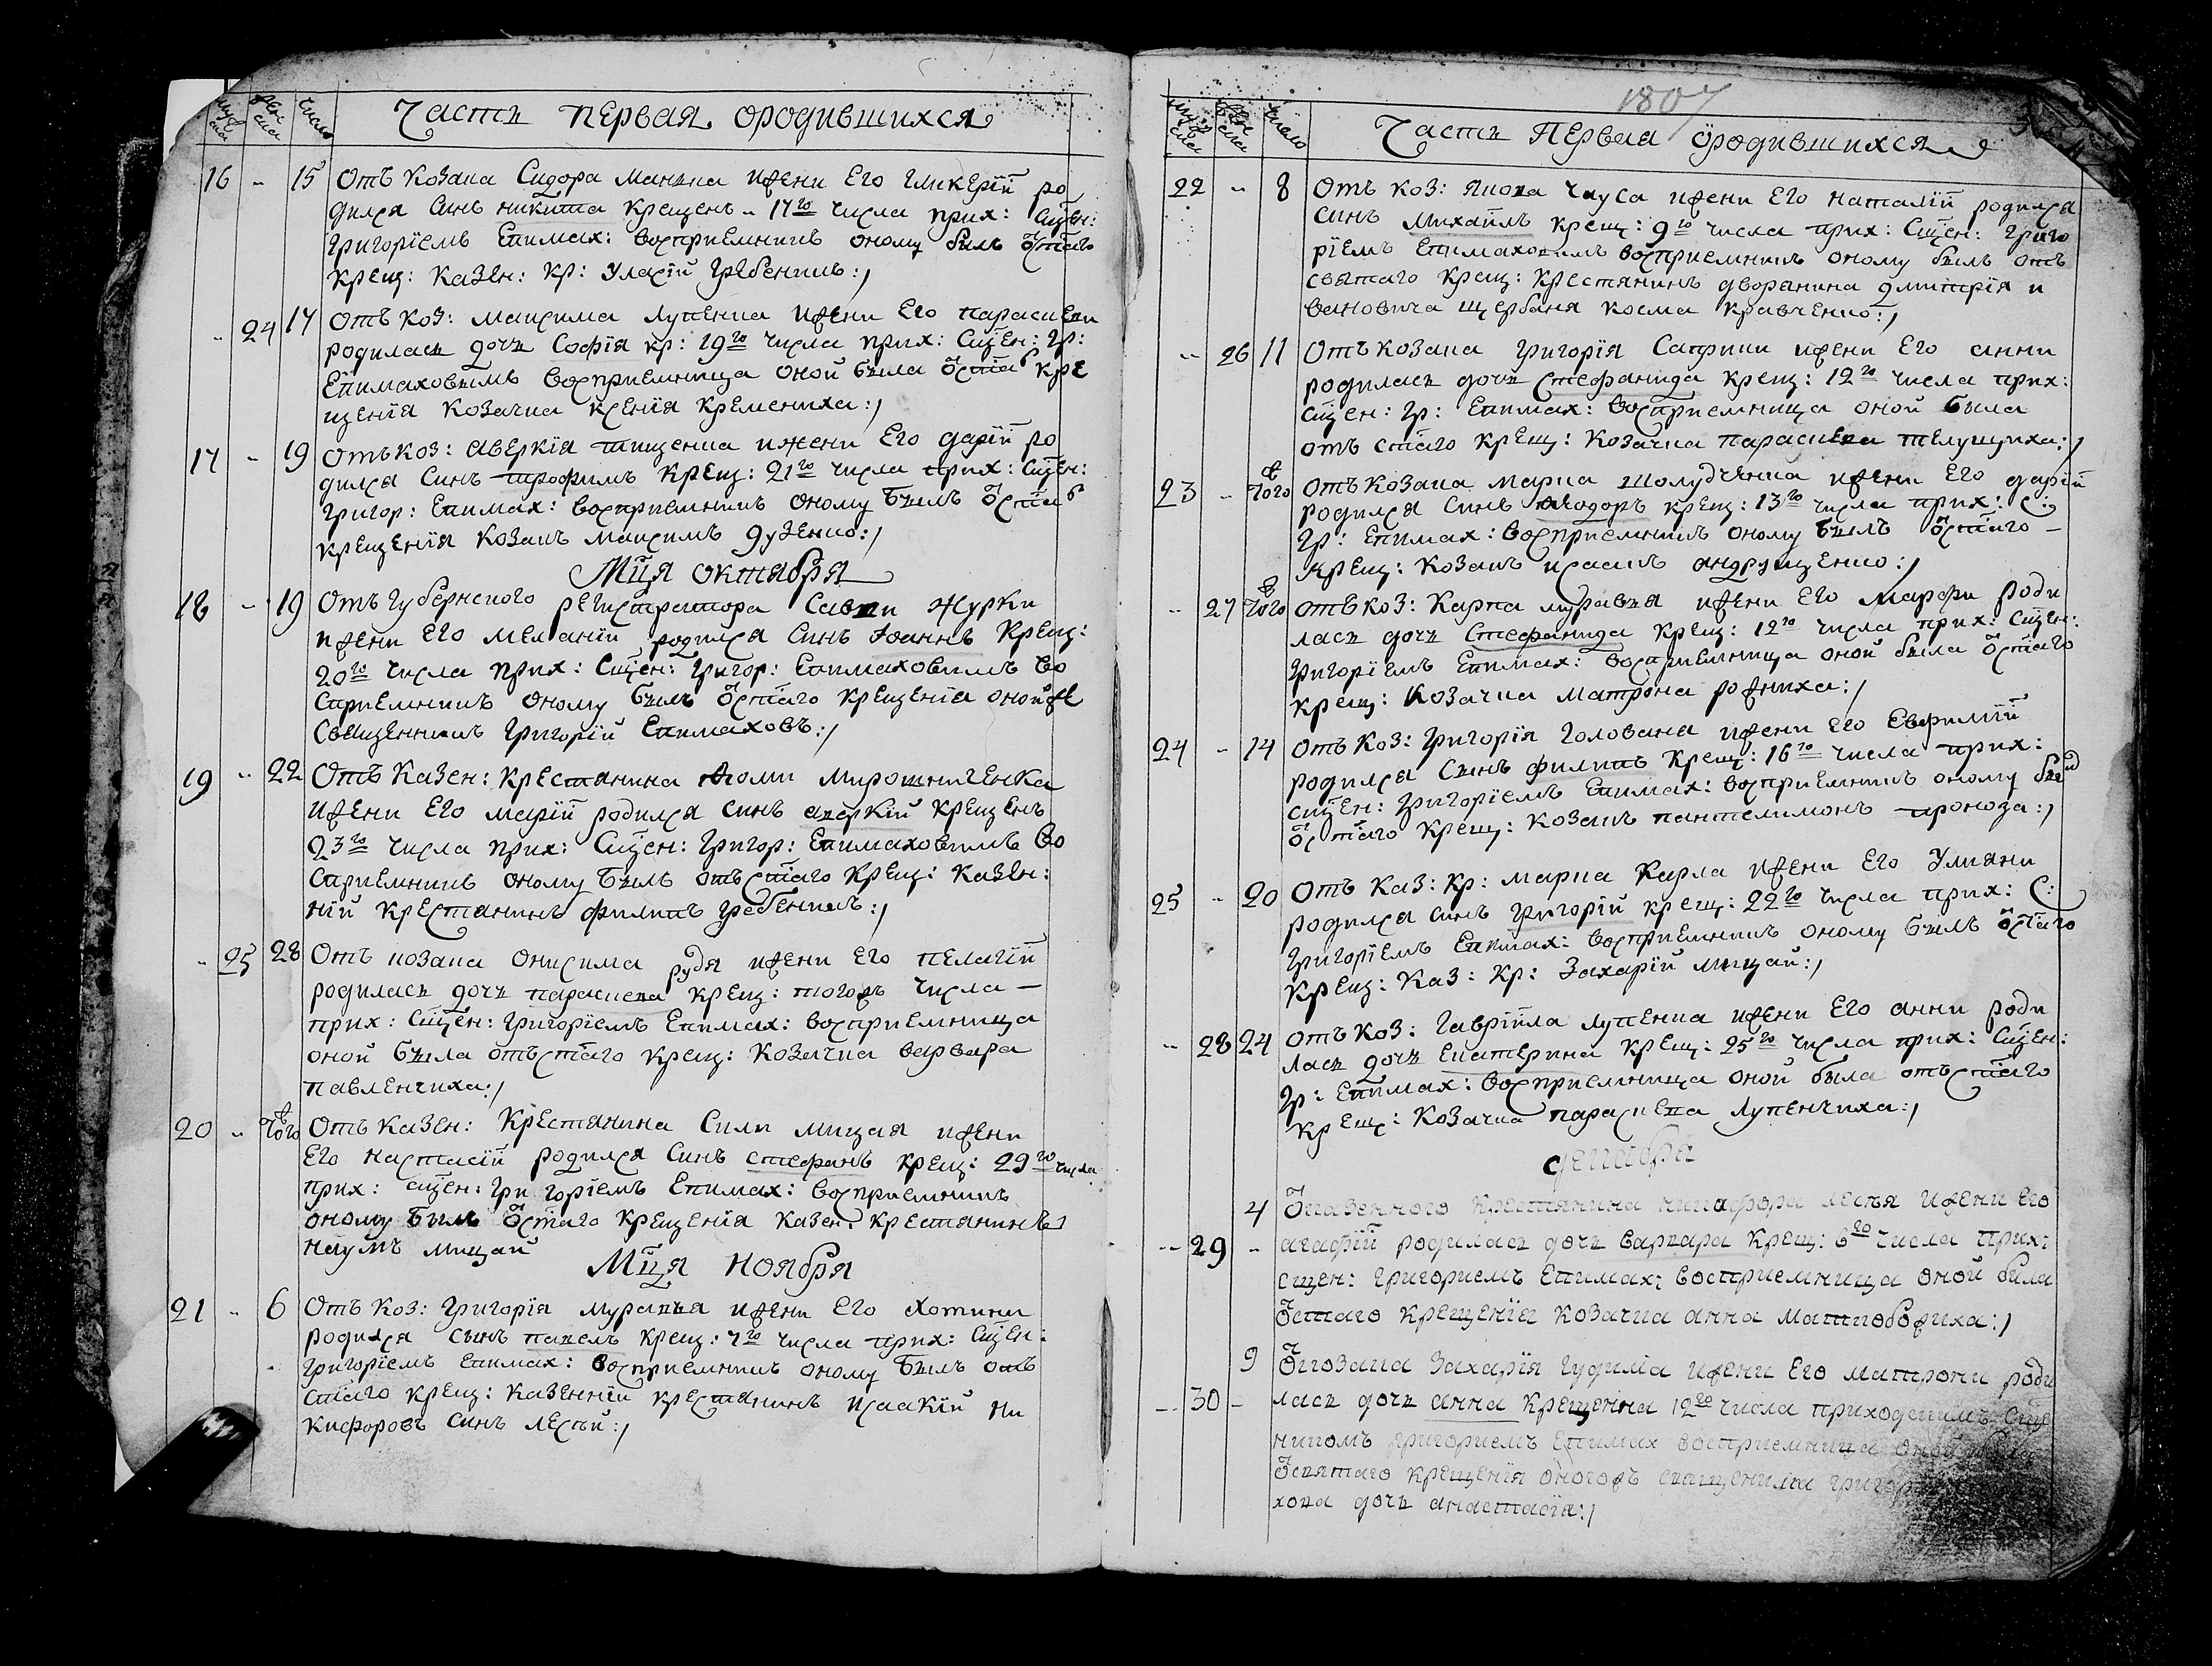 мужеска женска число Часть первая ородившихся
16 „ 15 Отъ козака Сидора Манька ижени Его Гликерїй ро
дился Синъ никита крещенъ „ 17го числа прих: Сщ҃ен:
Григорїемъ Епимах: восприемникъ оному билъ ѿст҃аго
крещ: казен: кр: Уласій Гребеникъ:/
„ 24 17 Отъ коз: максима лупенка ижени Его параскеви
родилась дочь Софїя кр: 19го числа прих: Сщ҃ен: Гр:
Епимаховымъ восприемница оной была ѿст҃аг кре
щенїя козачка ксенїя кремениха:/
17 „ 19 Отъ коз: аверкїя тищенка ижени Его дарїй ро
дился Синъ трофимъ крещ: 21го числа прих: Сщ҃ен:
Григор: Епимах: восприемникъ оному былъ ѿст҃аг
крещенїя козакъ максимъ дузенко:/
Мц҃а октября
18 „ 19 Отъ губернского регистратора Савви журки
ижени Его меланїй родился Синъ Іоаннъ крещ:
20го числа прих: Сщ҃ен: Григор: Епимаховимъ во
сприемникъ оному былъ ѿст҃аго крещенїя оной же
Священникъ Григорїй Епимаховъ:/
19 „ 22 Отъ казен: крестянина Ѳоми мирошниченка
ижени Его марїй родился синъ аверкїй крещенъ
23го числа прих: Сщ҃ен: Григор: Епимаховимъ во
сприемникъ оному былъ отъ ст҃аго крещ: казен:
нїй крестянинъ филипъ гребеникъ:/
„ 25 28 Отъ козака онисима рудя ижени Его пелагїй
родилась дочь параскева крещ: тогожъ числа —
прих: Сщ҃ен: Григорїемъ Епимах: восприемница
оной была отъ ст҃аго крещ: козачка варвара
павленчиха:/
20 „ того Отъ казен: крестянина Сили мицая ижени
Его настасїй родился Синъ стефанъ крещ: 29го числа
прих: сщ҃ен: Григорїемъ Епимах: восприемникъ
оному былъ ѿст҃аго крещенїя казен: крестянинъ
наумъ мицай
Мц҃а ноября
21 „ 6 Отъ коз: Григорїя муравья ижени Его хотини
родился сынъ павелъ крещ: 7го числа прих: Сщ҃ен:
Григорїемъ Епимах: восприемникъ оному былъ отъ
ст҃аго крещ: казеннїй крестянинъ исаакїй ни
кифоровъ синъ лесъй:/
1807
мужеска женска число Часть Первая ѻродившихся
22 „ 8 Отъ коз: якова чауса ижени Его наталїй родился
синъ михаилъ крещ: 9го числа прих: Сщ҃ен: Григо
рїемъ Епимаховимъ восприемникъ оному былъ отъ
святаго крещ: крестянинъ дворянина дмитрїя и
вановича щербаня косма кравченко:/
„ 26 11 Отъ козака Григорїя Саприки ижени Его анни
родилась дочь стефанида крещ: 12го числа прих:
Сщ҃ен: Гр: Епимах: восприемница оной была
отъ ст҃аго крещ: козачка параскева телущиха:/
23 „ того Отъ козака марка шолудченка ижени Его дарїй
родился Синъ Ѳеодоръ крещ: 13го числа прих: С:
Гр: Епимах: восприемникъ оному былъ ѿст҃аго —
крещ: козакъ исаакъ андрущенко:/
„ 27 того отъ коз: карпа муравья ижени Его марфи роди
лась дочь Стефанида крещ: 12го числа прих: Сщ҃ен:
Григорїемъ Епимах: восприемница оной была ѿст҃аго
крещ: козачка матрона рожниха:/
24 „ 14 Отъ коз: Григорїя голована ижени Его Евфимїй
родился сынъ филипъ крещ: 16го числа прих:
сщ҃ен: Григорїемъ Епимах: восприемникъ оному былъ
ѿст҃аго крещ: козакъ пантелимонъ проноза:/
25 „ 20 Отъ каз: кр: марка карла ижени Его Улияни
родился синъ Григорїй крещ: 22го числа прих: С:
Григорїемъ Епимах: восприемникъ оному былъ ѿст҃аго
крещ: каз: кр: Захарїй мицай:/
„ 28 24 отъ коз: Гаврїила лупенка ижени Его анни роди
лась дочь Екатерина крещ: 25го числа прих: Сщ҃ен:
Гр: Епимах: восприемница оной была отъ ст҃аго
крещ: козачка параскева лупенчиха:/
декабра
4 Ѿказенного крестянина никифора лесъя ижени Его
„ 29 „ агафїй родилась дочь варвара крещ: 6го числа прих:
сщен: григориемъ Епимах: восприемница оной была
ѿстаго крещенїя козачка анна
9 Ѿкозака Захарїя гудима ижени Его матрони роди
„ 30 „ лась дочь анна крещенна 12го числа приходскимъ Сще
никомъ григориемъ Епимах восприемница оной была
ѿсвятаго крещенїя оногожъ священника григор
хова дочь анастасїя:/